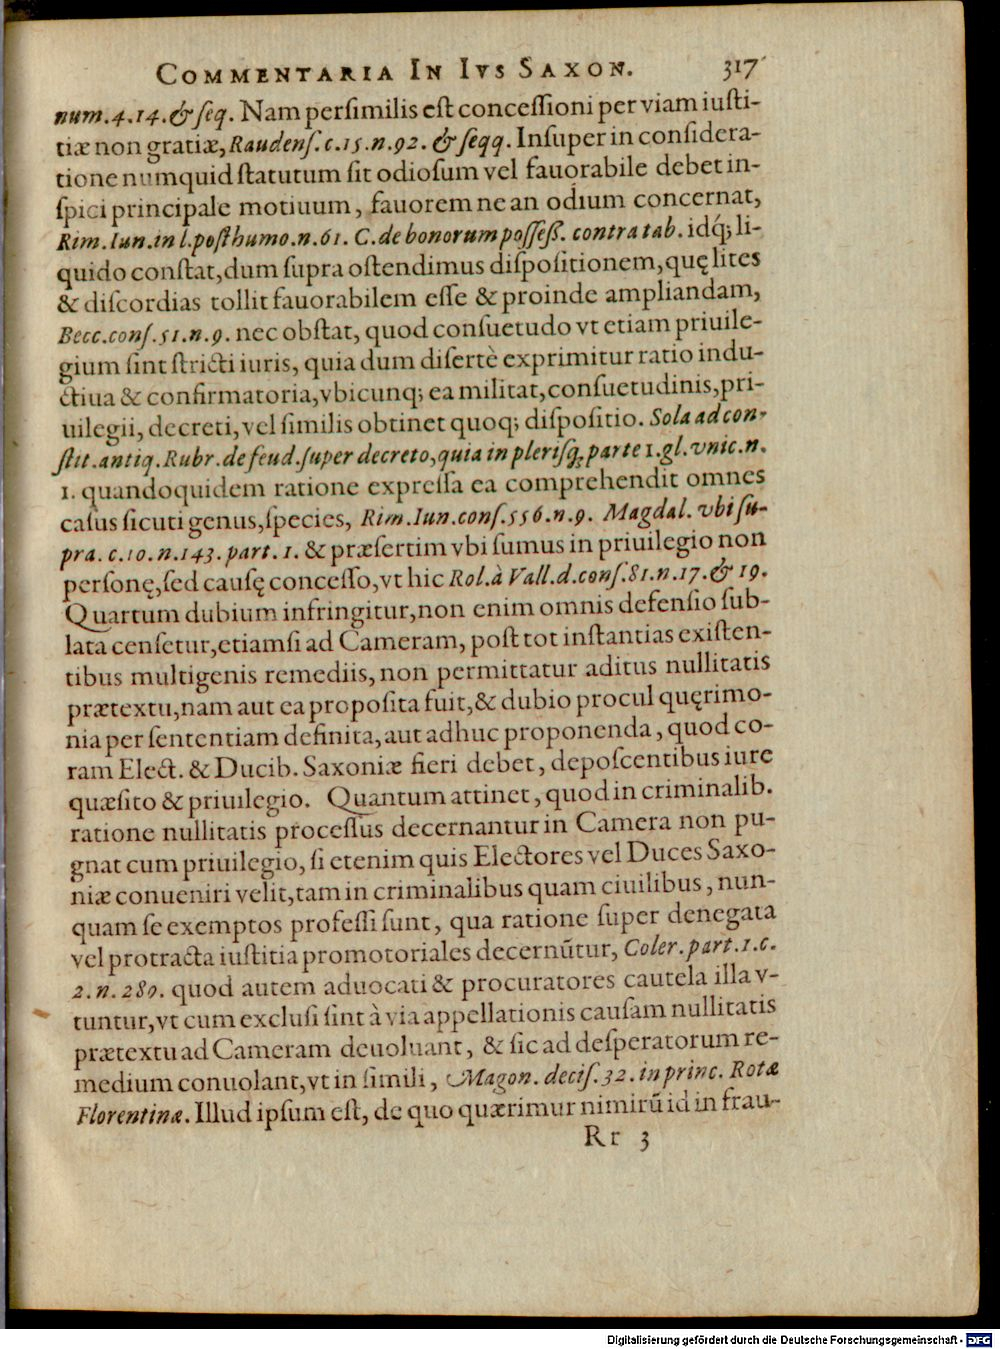 COMMENTARIA IN IVS SAXON. 317
num.4.14.& ſeq. Nam perſimilis eſt conceſſioni per viam iuſti-
tiæ non gratiæ, Raudenſ.c.15.n.92. & ſeqq. Inſuper in conſidera-
tione numquid ſtatutum ſit odioſum vel fauorabile debet in-
ſpici principale motiuum, fauorem ne an odium concernat,
Rim.Iun.in l.poſthumo.n.61. C.de bonorum poſſeß. contra tab. idq́; li-
quido conſtat, dum ſupra oſtendimus diſpoſitionem, quę lites
& diſcordias tollit fauorabilem eſſe & proinde ampliandam,
Becc.conſ.51.n.9. nec obſtat, quod conſuetudo vt etiam priuile-
gium ſint ſtricti iuris, quia dum diſertè exprimitur ratio indu-
ctiua & confirmatoria, vbicunq; ea militat, conſuetudinis, pri-
uilegii, decreti, vel ſimilis obtinet quoq; diſpoſitio. Sola ad con-
ſtit.antiq.Rubr.de feud.ſuper decreto, quia in pleriſq; parte 1.gl.vnic.n.
1. quandoquidem ratione expreſſa ea comprehendit omnes
caſus ſicuti genus, ſpecies, Rim.Iun.conſ.556.n.9. Magdal. vbi ſu-
pra. c.10.n.143.part.1. & præſertim vbi ſumus in priuilegio non
perſonę, ſed cauſę conceſſo, vt hic Rol.à Vall.d.conſ.81.n.17.& 19.
Quartum dubium infringitur, non enim omnis defenſio ſub-
lata cenſetur, etiamſi ad Cameram, poſt tot inſtantias exiſten-
tibus multigenis remediis, non permittatur aditus nullitatis
prætextu, nam aut ea propoſita fuit, & dubio procul quęrimo-
nia per ſententiam definita, aut adhuc proponenda, quod co-
ram Elect. & Ducib. Saxoniæ fieri debet, depoſcentibus iure
quæſito & priuilegio. Quantum attinet, quod in criminalib.
ratione nullitatis proceſſus decernantur in Camera non pu-
gnat cum priuilegio, ſi etenim quis Electores vel Duces Saxo-
niæ conueniri velit, tam in criminalibus quam ciuilibus, nun-
quam ſe exemptos profeſſi ſunt, qua ratione ſuper denegata
vel protracta iuſtitia promotoriales decernūtur, Coler.part.1.c.
2.n.289. quod autem aduocati & procuratores cautela illa v-
tuntur, vt cum excluſi ſint à via appellationis cauſam nullitatis
prætextu ad Cameram deuoluant, & ſic ad deſperatorum re-
medium conuolant, vt in ſimili, Magon. deciſ.32. in princ. Rotæ
Florentinæ. Illud ipſum eſt, de quo quærimur nimirū id in frau-
Rr 3
Digitalisierung gefördert durch die Deutsche Forschungsgemeinschaft - DFG